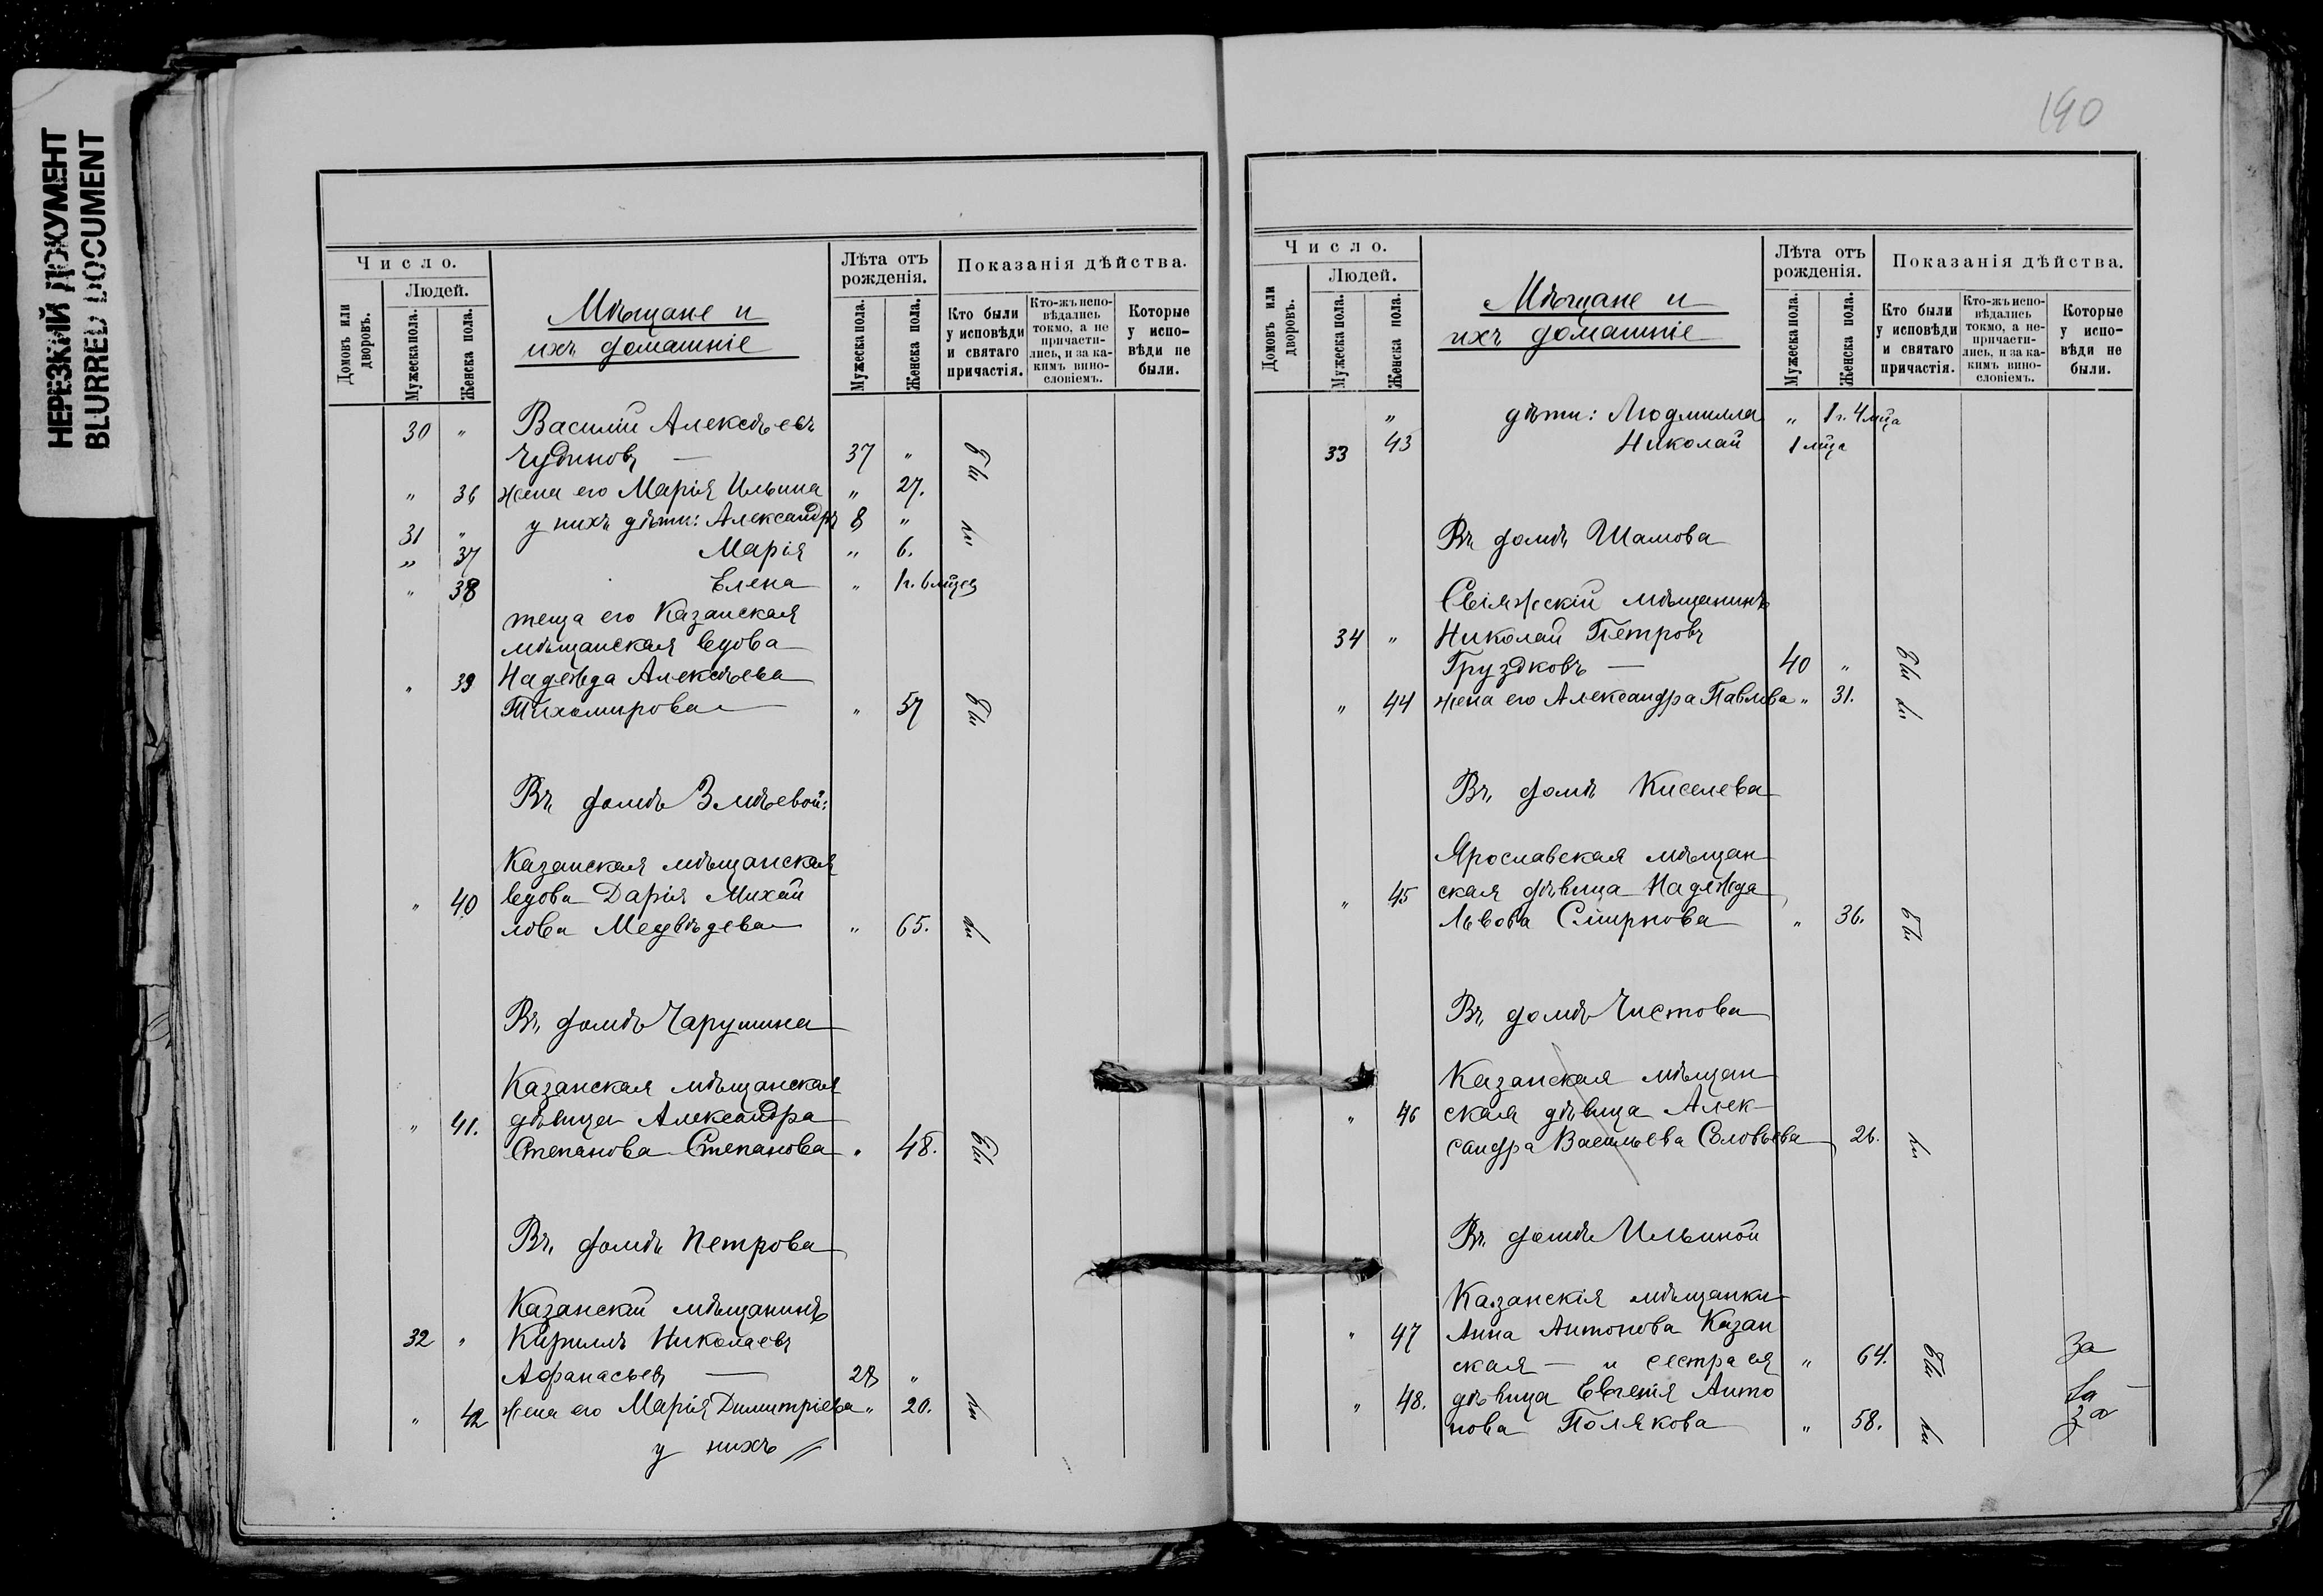 НЕРЕЗКИЙ ДОКУМЕНТ
BLURRED DOCUMENT
Число.
Людей.
Домовъ или дворовъ.
Мужеска пола.
Женска пола.
Мѣщане и
ихъ домашніе
Лѣта отъ рожденія.
Мужеска пола.
Женска пола.
Показанія дѣйства.
Кто были у исповѣди и святаго причастія.
Кто-жъ исповѣдались токмо, а не причастились, и за какимъ винословіемъ.
Которые у исповѣди не были.
30 " Василій Алексѣевъ
Чудиновъ — 37 "
" 36 жена его Марія Ильина " 27.
31 " у нихъ дѣти: Александръ 8 "
" 37 Марія " 6.
" 38 Елена " 1 г. 6 мцев
теща его Казанская
мѣщанская вдова
" 39 Надежда Алексѣева
Тихомирова " 57
Въ домѣ Змѣевой:
Казанская мѣщанская
" 40 вдова Дарія Михай
лова Медвѣдева " 65.
Въ домѣ Чарушина
Казанская мѣщанская
" 41. дѣвица Александра
Степанова Степанова " 48.
Въ домѣ Петрова
Казанскій мѣщанинъ
32 " Кириллъ Николаевъ
Афанасьевъ — 28 "
" 42 жена его Марія Димитріева " 20.
у нихъ //
190
Число.
Людей.
Домовъ или дворовъ.
Мужеска пола.
Женска пола.
Мѣщане и
ихъ домашніе
Лѣта отъ рожденія.
Мужеска пола.
Женска пола.
Показанія дѣйства.
Кто были у исповѣди и святаго причастія.
Кто-жъ исповѣдались токмо, а не-причастились, и за какимъ винословіемъ.
Которые у исповѣди не были.
" дѣти: Людмилла " 1 г. 4 мца
33 43 Николай 1 мца
Въ домѣ Шамова
Свіяжскій мѣщанинъ
34 " Николай Петровъ
Груздковъ — 40 "
" 44 жена его Александра Павлова " 31.
Въ домѣ Киселева
Ярославская мѣщан
" 45 ская дѣвица Надежда
Львова Смирнова " 36.
Въ домѣ Чистова
Казанская мѣщан
" 46 ская дѣвица Алек-
сандра Васильева Соловьева 26.
Въ домѣ Ильиной
Казанскія мѣщанки
" 47 Анна Антонова Казан
ская — и сестра ея " 64. за
" 48. дѣвица Евгенія Анто
нова Полякова " 58. за